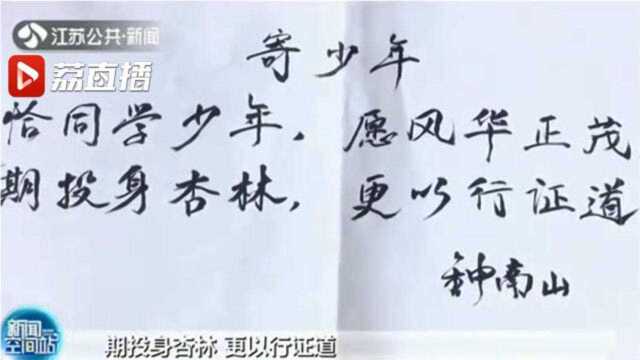 江苏公共·新闻
荔直播
寄少年
恰同学少年，愿风华正茂
期投身杏林，更以行证道
钟南山
新闻
空间站
期投身杏林 更以行证道